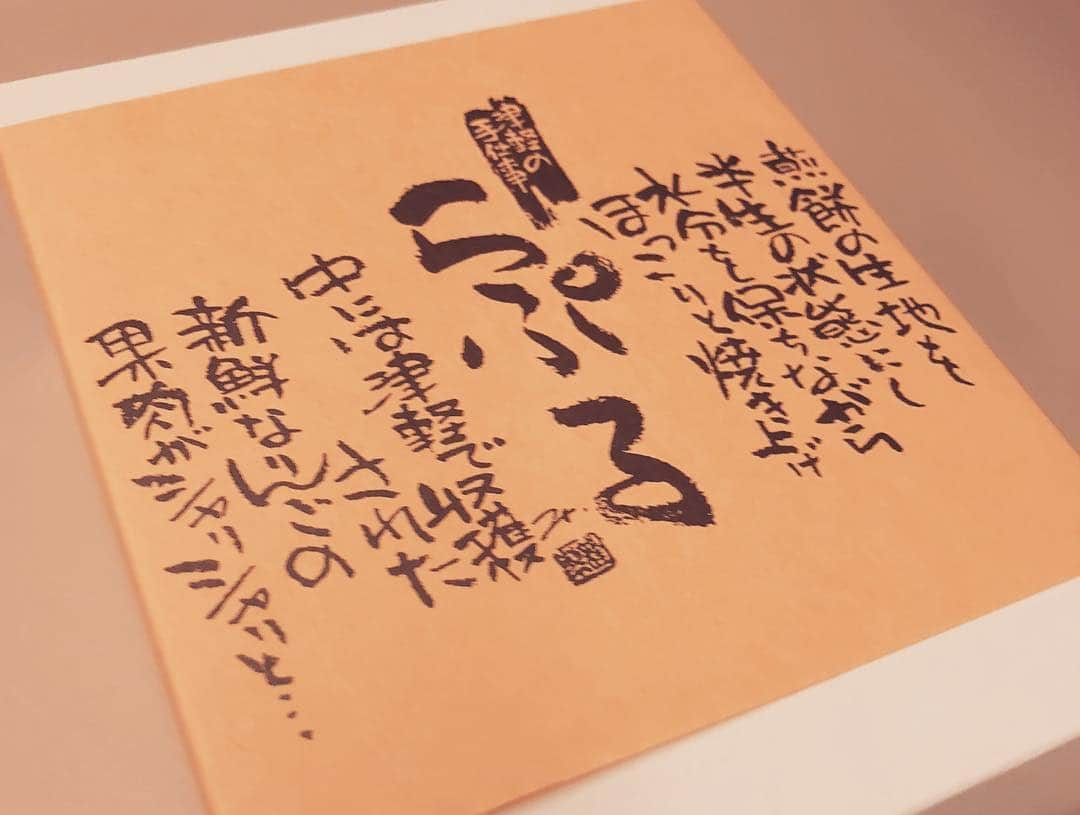 煎餅の生地を
半生の状態にし
水分を保ちながら
ほっこりと焼き上げ
津軽の
手仕事
らぷる
中には津軽で収穫
された
新鮮なりんごの
果肉がシャリシャリと…